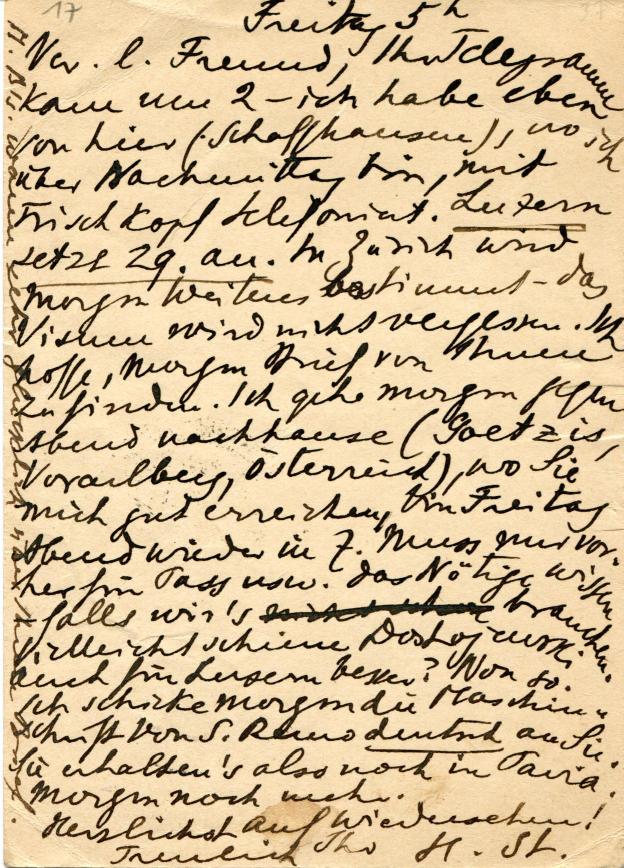 17
Freitag 5h
Ver. l. Freund, Ihr Telegramm
kam um 2 – ich habe eben
von hier (Schaffhausen), wo ich
über Nachmittag bin, mit
Frischkopf telefoniert. Luzern
setzt 29. an. In Zürich wird
morgen Weiteres bestimmt – das
Visum wird nicht vergessen. Ich
hoffe, morgen Brief von Ihnen
zu finden. Ich gehe morgen gegen
Abend nachhause (Goetzis,
Vorarlberg, Österreich), wo Sie
mich gut erreichen, bin Freitag
Abend wieder in Z. Muss nur vor-
her für Pass usw. das Nötige wissen
falls wir's brauchen.
Vielleicht schiene Dostojewski
auch für Luzern besser? Non so.
Ich schicke morgen die Maschin-
schrift von S. Remo deutsch an Sie.
Sie erhalten's also noch in Pavia.
Morgen noch mehr.
Herzlichst auf Wiedersehen!
Treulich Ihr H. St.